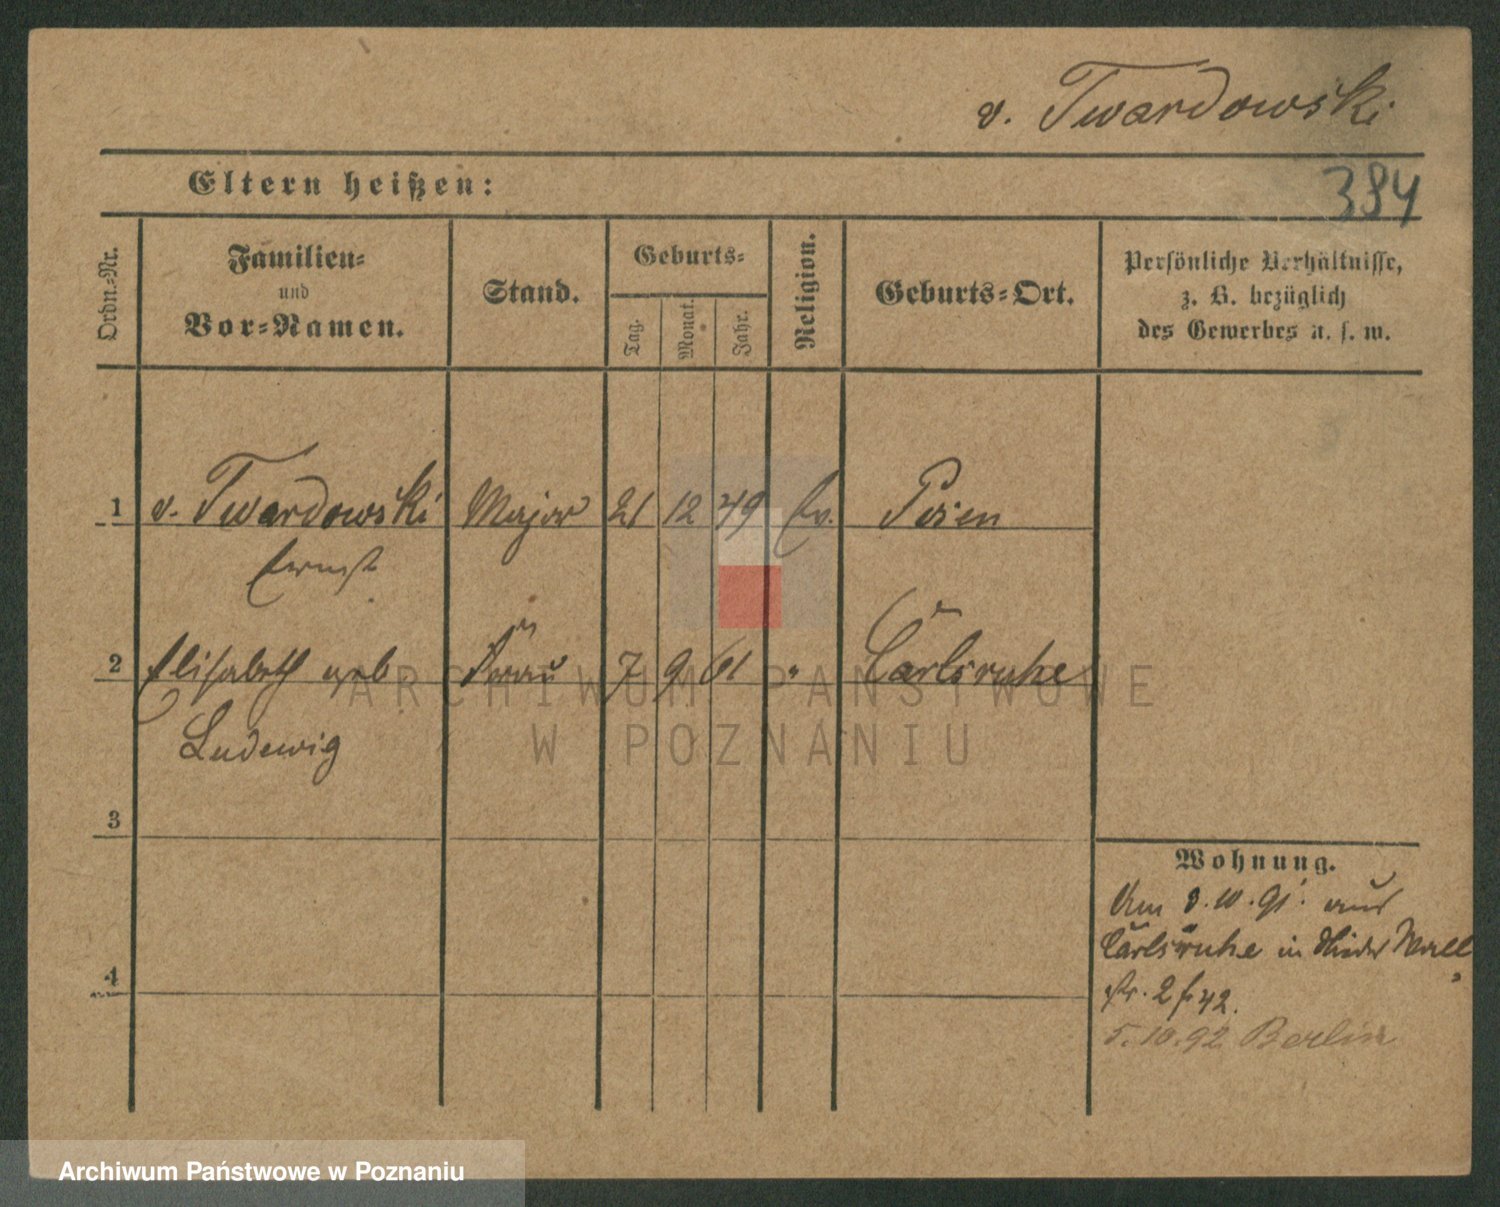 v. Twardowski
Eltern heißen:
384
Ordn.-Nr.
Familien-
und
Vor-Namen.
Stand.
Geburts-
Tag.
Monat.
Jahr.
Religion.
Geburts-Ort.
Persönliche Verhältnisse,
z. B. bezüglich
des Gewerbes u. s. w.
1 v. Twardowski Major 21 12 49 Ev. Posen
Ernst
2 Elisabeth geb Frau 7 9 61 " Carlsruhe
Ludewig
3
4
Wohnung.
Am 3.10.91. aus
Carlsruhe in Wall
str. 2 42.
5.10.92 Berlin
ARCHIWUM PAŃSTWOWE
W POZNANIU
Archiwum Państwowe w Poznaniu